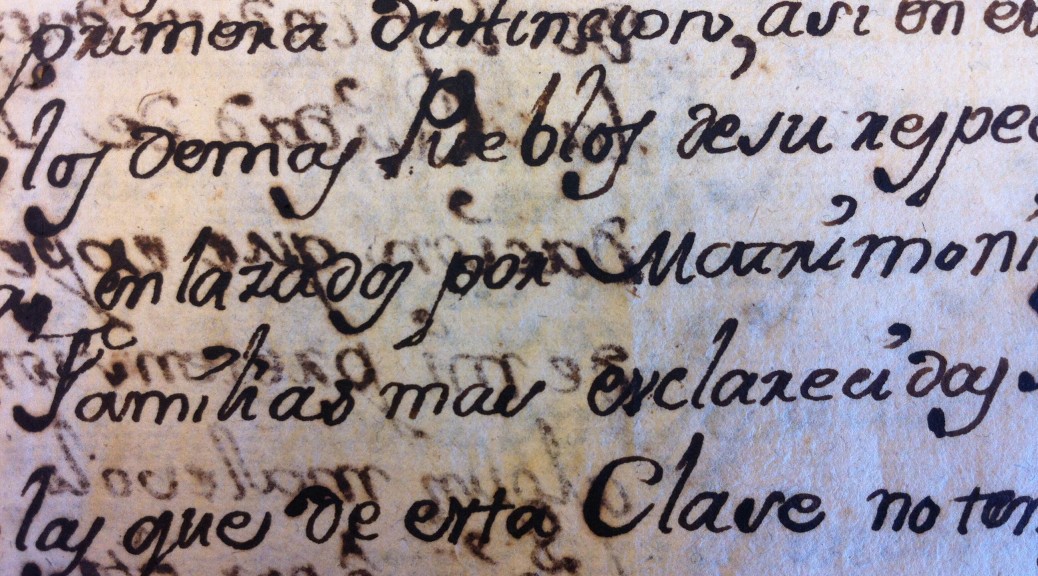 primera distincion, asi en el
los demas Pueblos desu respec
enlazados por Matrimoni
Familias mas esclarecidas
las que de esta Clase no ten